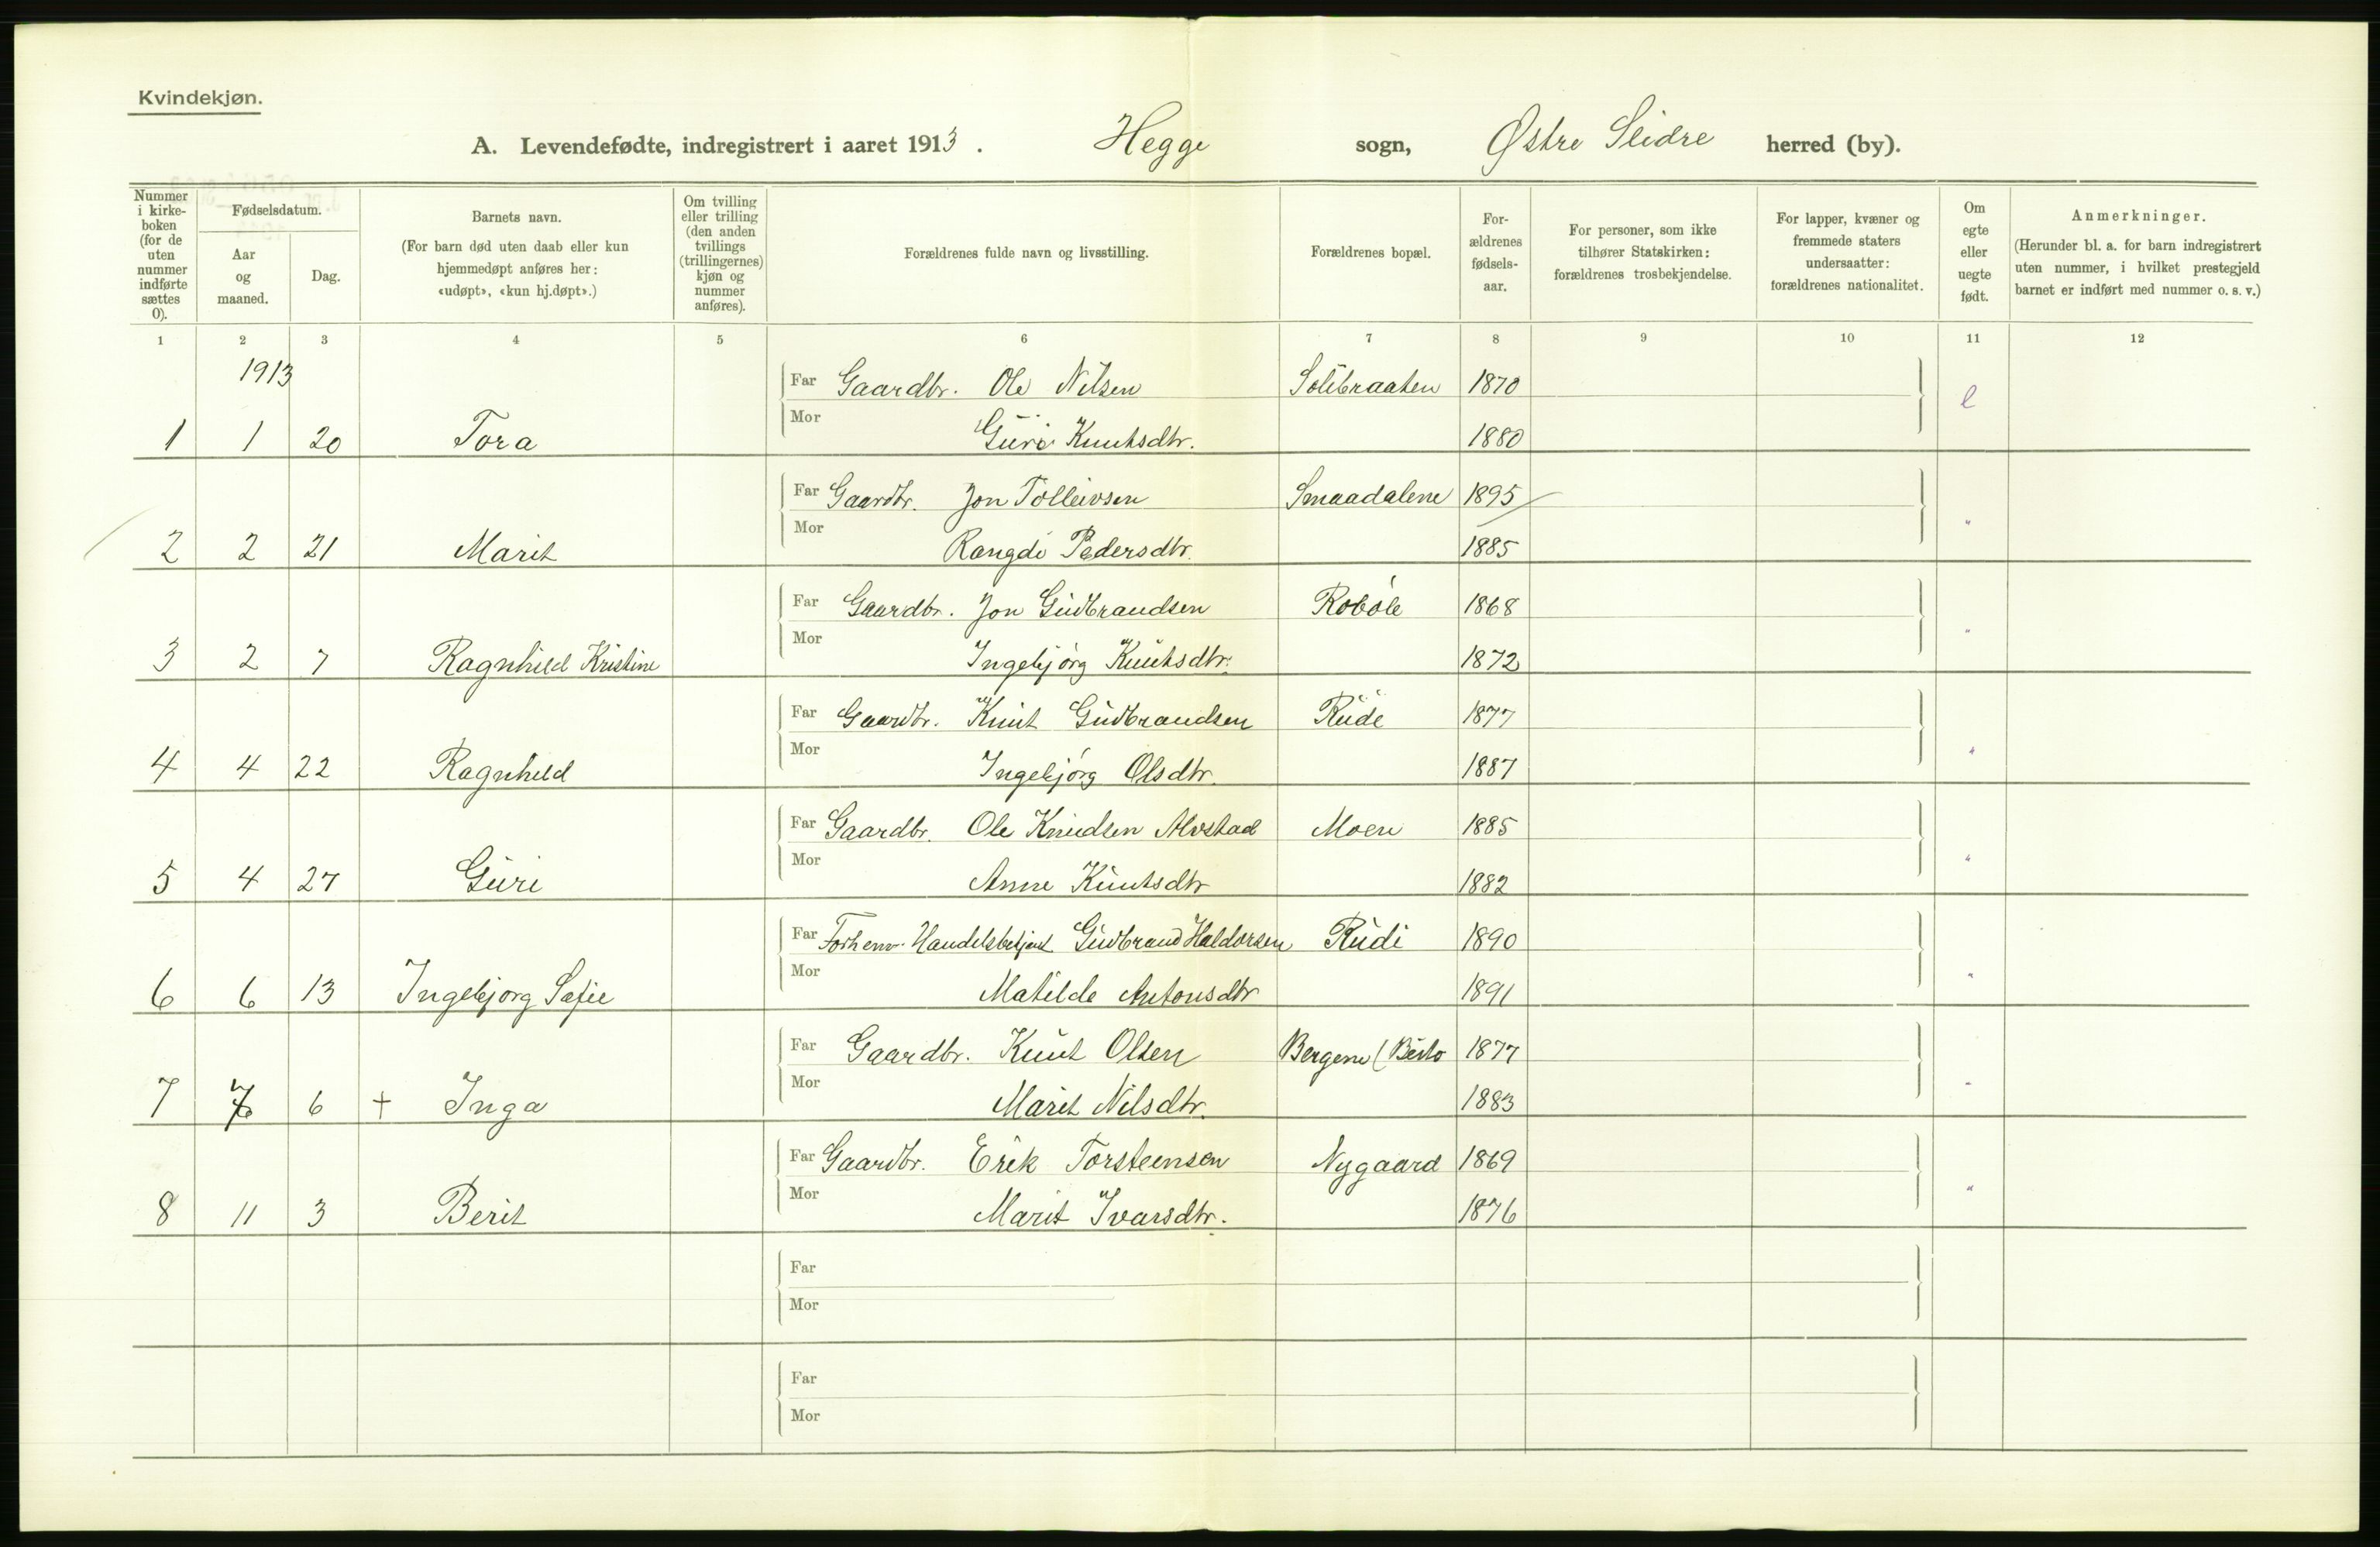 Kvindekjøn.
A. Levendefødte, indregistrert i aaret 1913. Hegge sogn, Østre Slidre herred (by).
Nummer i kirke-boken (for de uten nummer indførte sættes 0).
Fødselsdatum.
Aar og maaned.
Dag.
Barnets navn.
(For barn død uten daab eller kun hjemmedøpt anføres her: «udøpt», «kun hj.døpt».)
Om tvilling eller trilling (den anden tvillings (trillingernes) kjøn og nummer anføres).
Forældrenes fulde navn og livsstilling.
Forældrenes bopæl.
For-ældrenes fødsels-aar.
For personer, som ikke tilhører Statskirken: forældrenes trosbekjendelse.
For lapper, kvæner og fremmede staters undersaatter: forældrenes nationalitet.
Om egte eller uegte født.
Anmerkninger.
(Herunder bl. a. for barn indregistrert uten nummer, i hvilket prestegjeld barnet er indført med nummer o. s. v.)
1 2 3 4 5 6 7 8 9 10 11 12
1913
Far Gaardbr. Ole Nilsen Solibraaten 1870 e
1 1 20 Tora Mor Guri Knutsdtr. 1880
Far Gaardbr. Jon Tolleivsen Smaadalene 1895 "
2 2 21 Marit Mor Rangdi Pedersdtr. 1885
Far Gaardbr. Jon Gudbrandsen Robøle 1868 "
3 2 7 Ragnhild Kristine Mor Ingebjørg Knutsdtr. 1872
Far Gaardbr. Knut Gudbrandsen Rude 1877 "
4 4 22 Ragnhild Mor Ingebjørg Olsdtr. 1887
Far Gaardbr. Ole Knudsen Alvstad Moen 1885 "
5 4 27 Guri Mor Anne Knutsdtr 1882
Far Forhenv. Handelsbetjent Gudbrand Haldorsen Rudi 1890 "
6 6 13 Ingebjørg Sofie Mor Matilde Antonsdtr 1891
Far Gaardbr. Knut Olsen Bergene (Beito 1877 "
7 7 6 + Inga Mor Marit Nilsdtr. 1883
Far Gaardbr. Erik Torsteensen Nygaard 1869 "
8 11 3 Berit Mor Marit Ivarsdtr. 1876
Far
Mor
Far
Mor